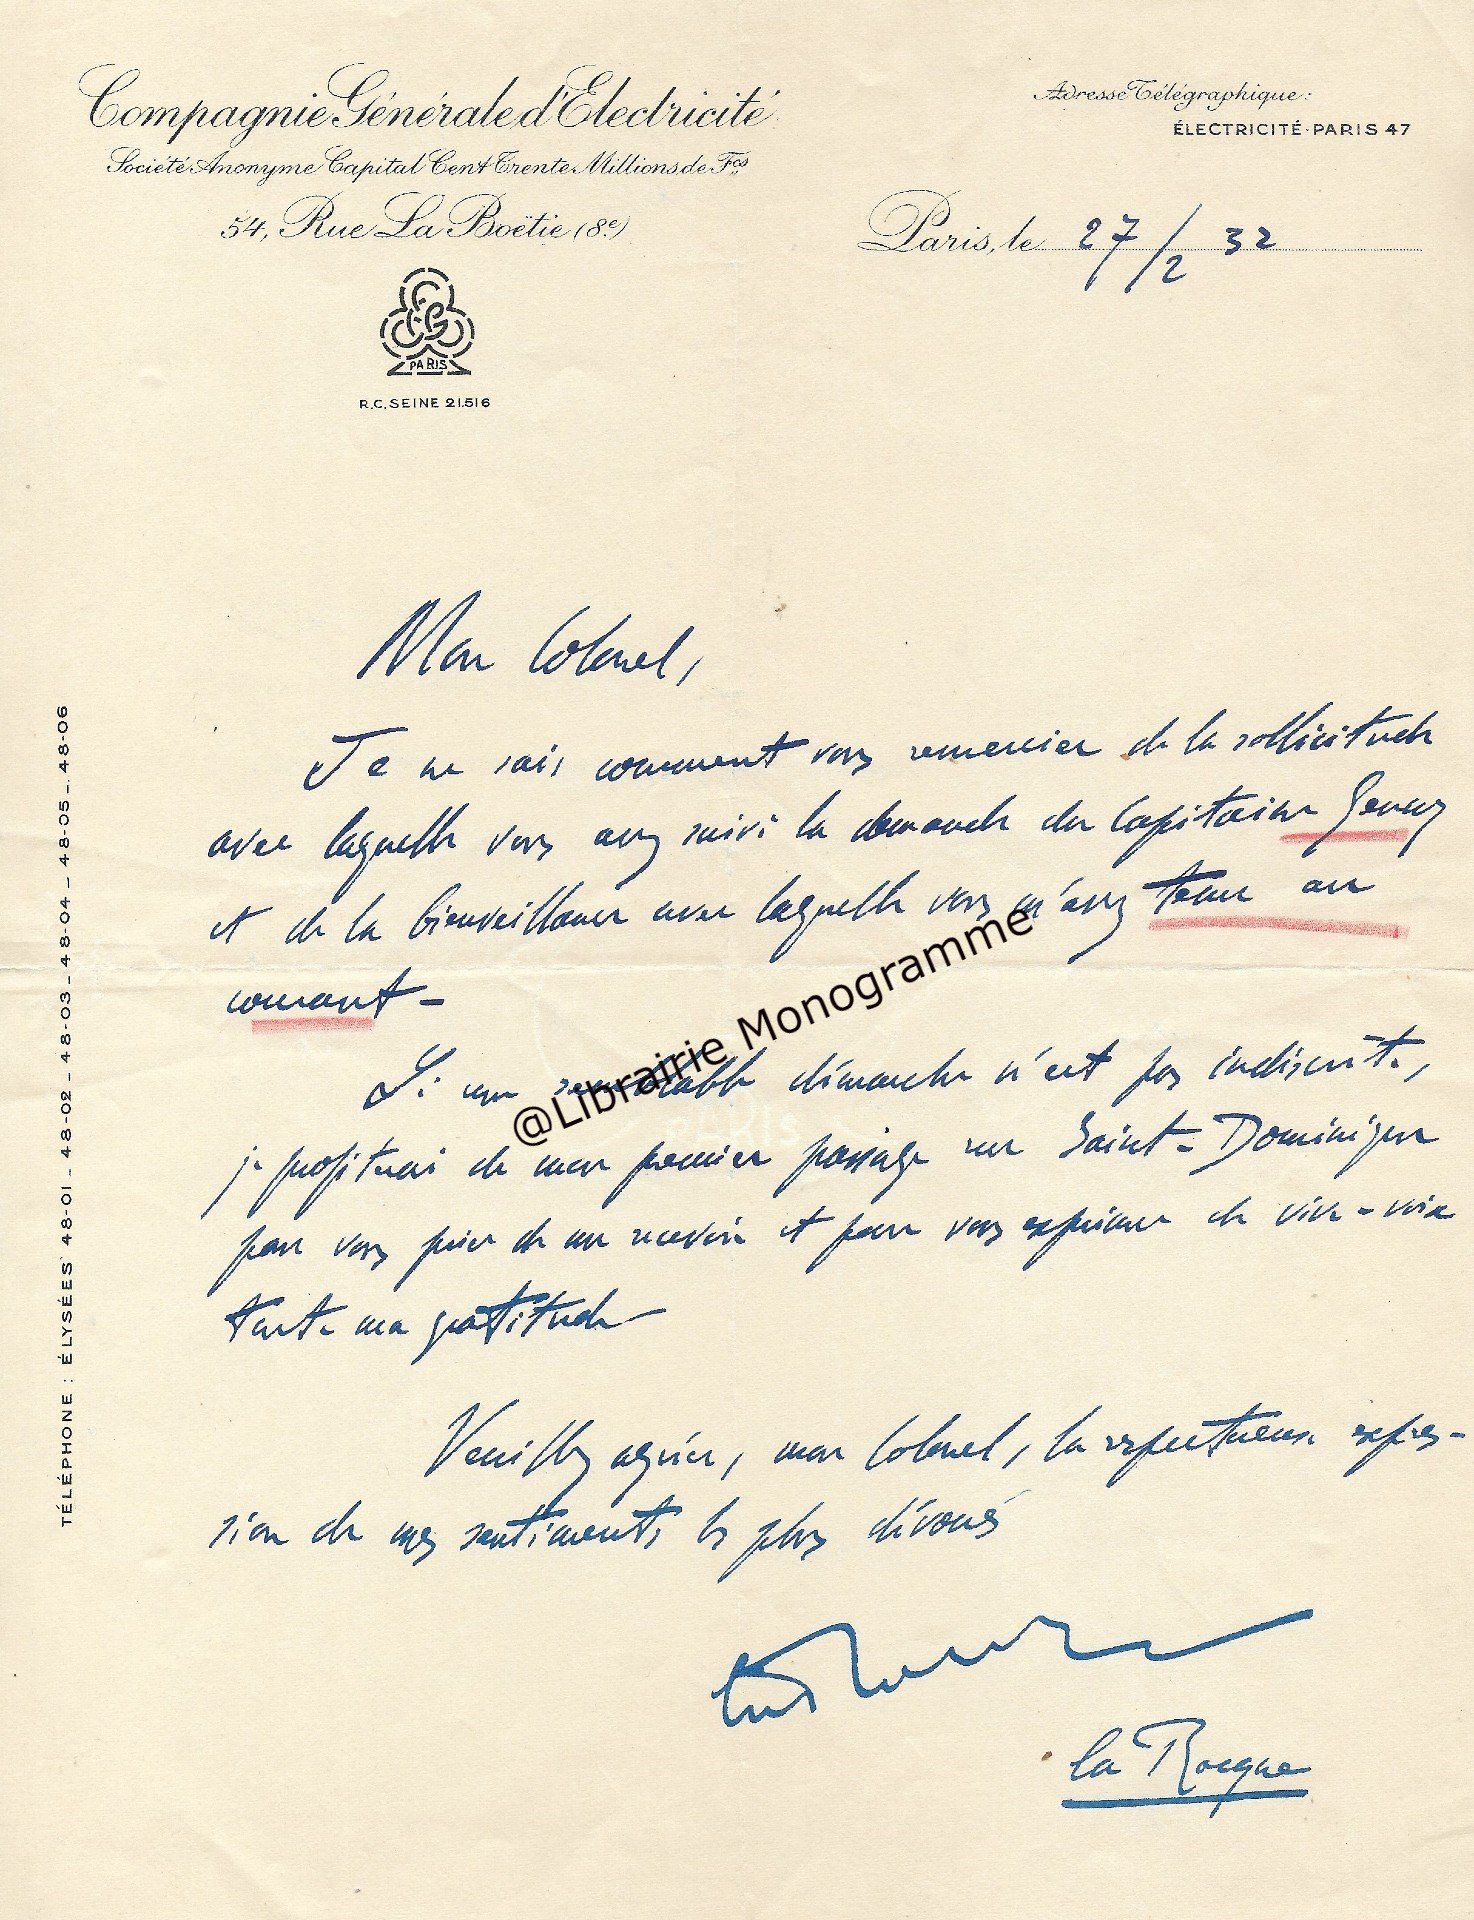 Compagnie Générale d'Electricité
Société Anonyme Capital Cent Trente Millions de Fcs
54, Rue La Boëtie (8e)
PARIS
R.C. SEINE 21.516
Adresse Télégraphique:
ÉLECTRICITÉ·PARIS 47
Paris, le 27/2 32
TÉLÉPHONE : ÉLYSÉES 48-01 _ 48-02 _ 48-03 _ 48-04 _ 48-05 _ 48-06
Mon Colonel,
Je ne sais comment vous remercier de la sollicitude
avec laquelle vous avez suivi la demande du Capitaine
et de la bienveillance avec laquelle vous m'avez tenu au
courant -
Si une semblable démarche n'est pas indiscrète,
je profiterai de mon premier passage rue Saint-Dominique
pour vous prier de me recevoir et pour vous exprimer de vive-voix
toute ma gratitude
Veuillez agréer, mon Colonel, la respectueuse expres-
sion de mes sentiments les plus dévoués
La Rocque
@Librairie Monogramme